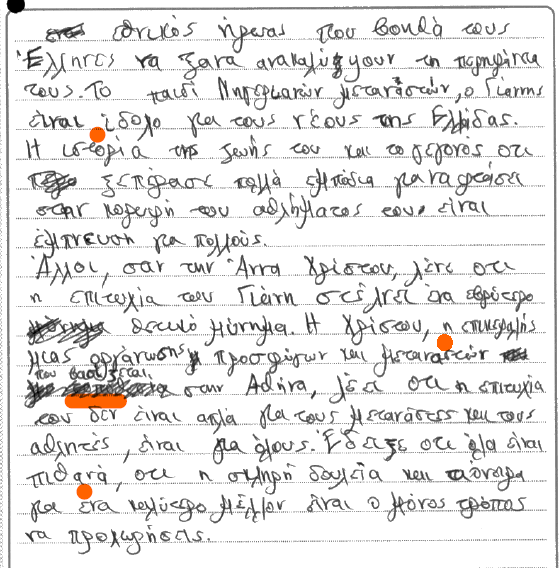 εθνικός ήρωας που βοηθά τους
Έλληνες να ξανα ανακαλύψουν τη περηφάνια
τους. Το παιδί Νιγεριανών μεταναστών, ο Γιάννης
είναι ίδολο για τους νέους της Ελλάδας.
Η ιστορία της ζωής του και το γεγονός οτι
ξεπέρασε πολλά εμπόδια για να φτάσει
στην κορυφή του αθλήματος του, είναι
έμπνευση για πολλούς.
Άλλοι, σαν την Άννα Χρίστου, λένε οτι
η επιτυχία του Γιάννη στέλνει ένα ευρύτερο
θετικό μύνημα. Η Χρίστου, η επικεφαλής
μιας οργάνωσης προσφύγων και μεταναστών
που βασίζεται
στην Αθήνα, λέει οτι η επιτυχία
του δεν είναι απλά για τους μετανάστες και τους
αθλητές, είναι για όλους. Έδειξε οτι όλα είναι
πιθανά, οτι η σκληρή δουλεία και τα όνειρα
για ένα καλύτερο μέλλον είναι ο μόνος τρόπος
να προχωρήσεις.